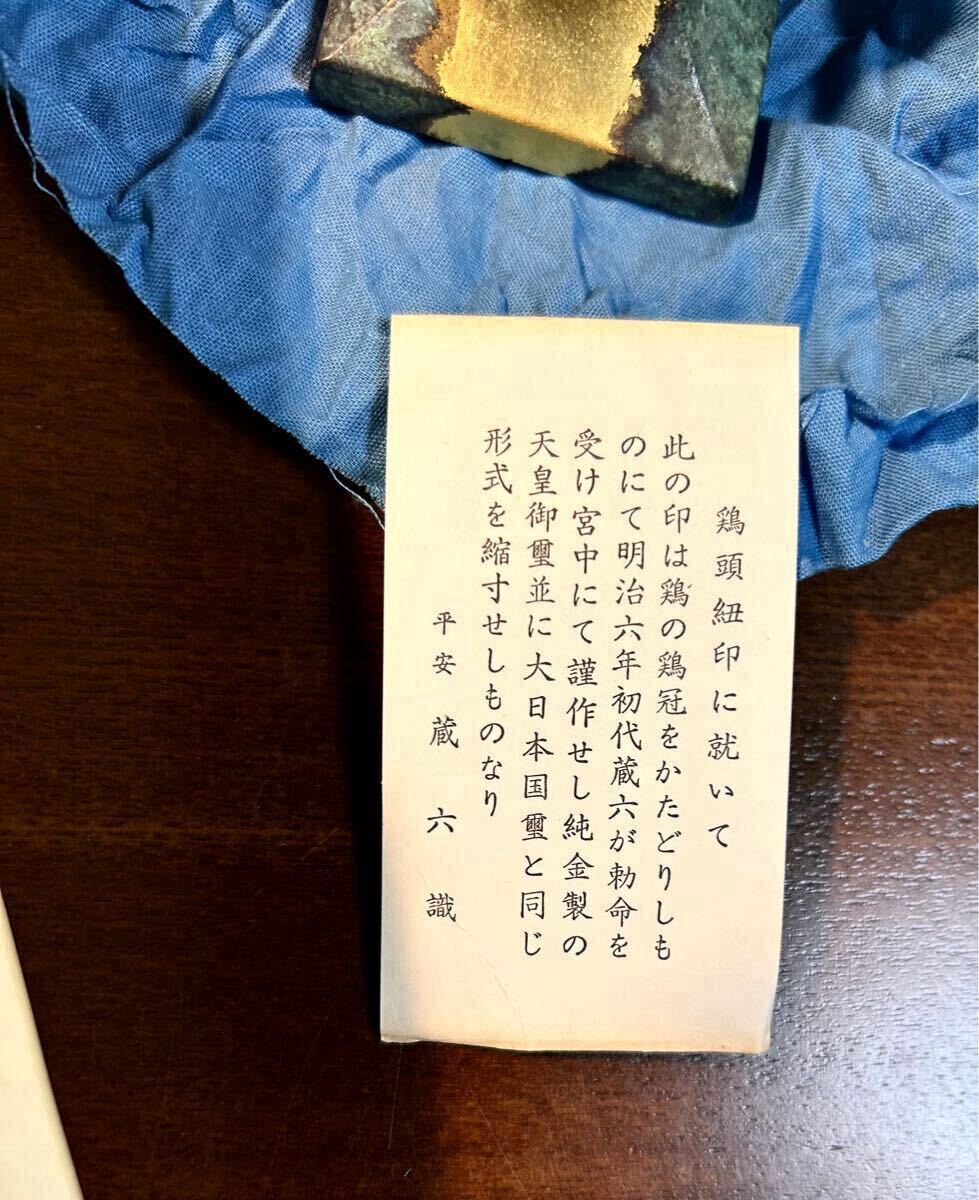 鶏頭紐印に就いて
此の印は鶏の鶏冠をかたどりしも
のにて明治六年初代蔵六が勅命を
受け宮中にて謹作せし純金製の
天皇御璽並に大日本国璽と同じ
形式を縮寸せしものなり
平安 蔵六 識